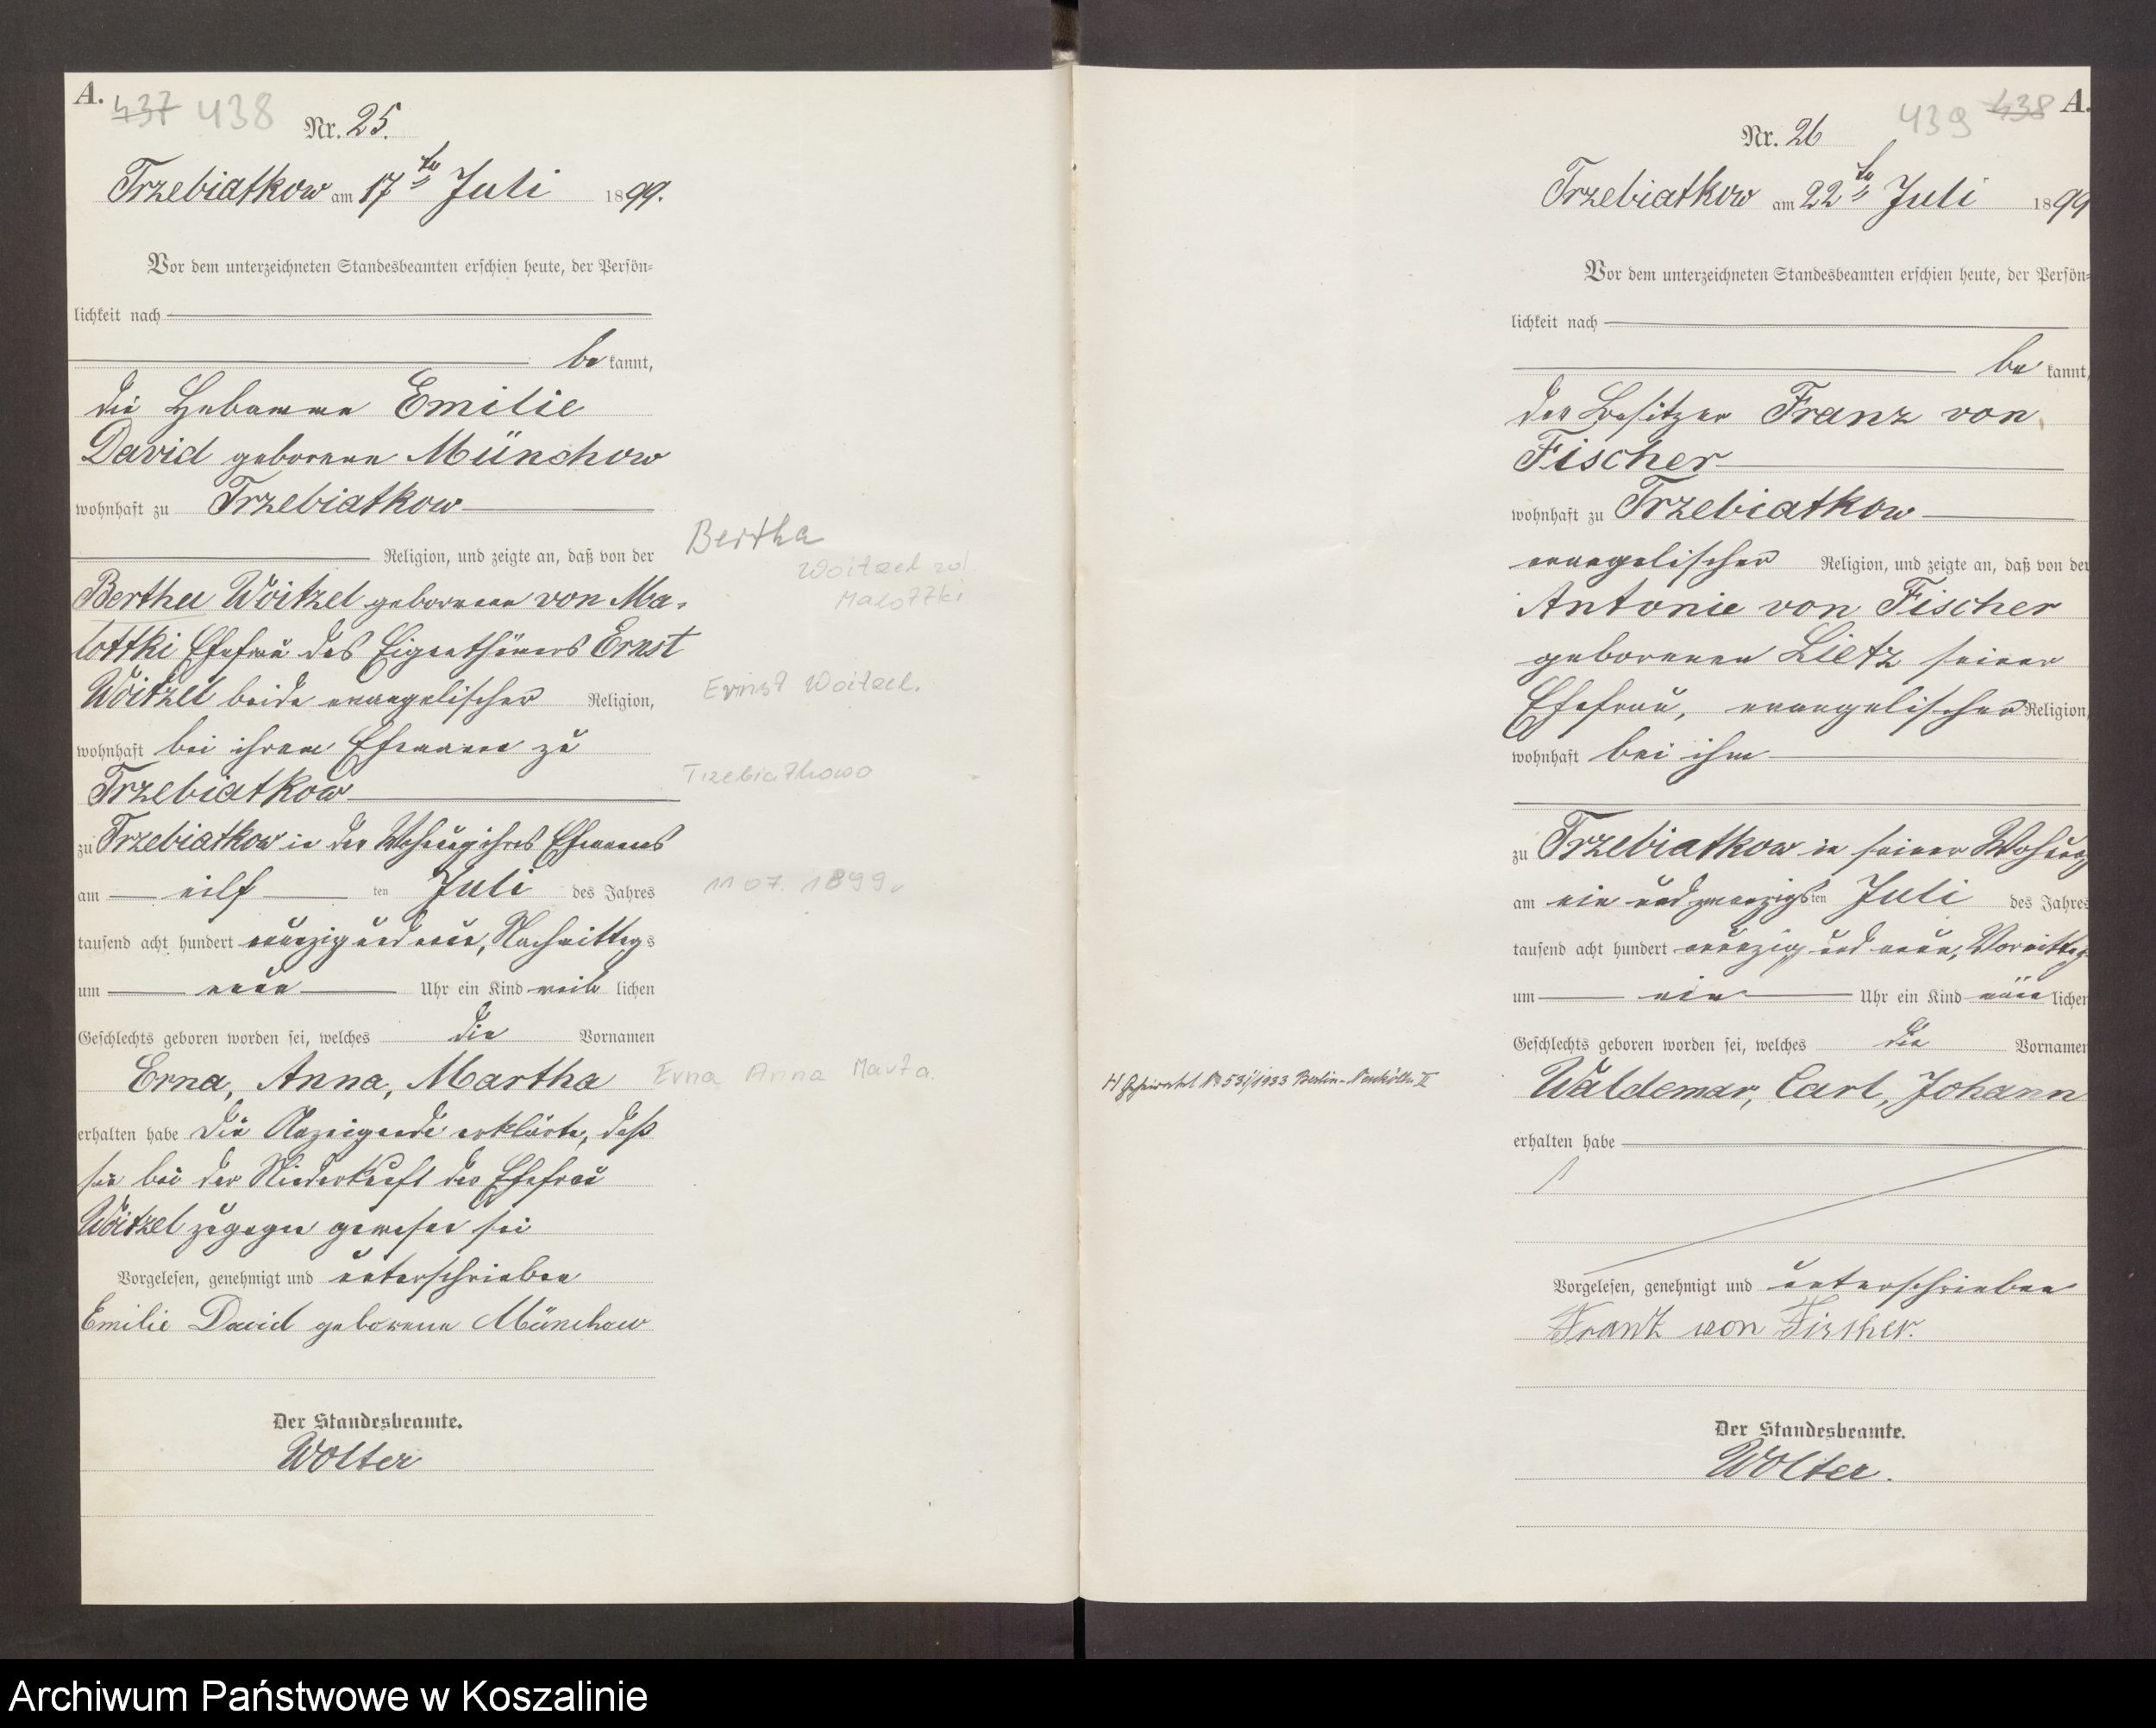 A.
437 438
Nr. 25.
Trzebiatkow am 17ten Juli 1899.
Vor dem unterzeichneten Standesbeamten erschien heute, der Persön=
lichkeit nach
be kannt,
die Hebamme Emilie
David geborene Münchow
wohnhaft zu Trzebiatkow
Religion, und zeigte an, daß von der
Bertha Woitzel geborenen von Ma-
lottki Ehefrau des Eigenthümers Ernst
Woitzel beide evangelischer Religion,
wohnhaft bei ihrem Ehemanne zu
Trzebiatkow
zu Trzebiatkow in der Wohnung ihres Ehemannes
am eilf ten Juli des Jahres
tausend acht hundert neunzig und neun, Nachmittags
um neun Uhr ein Kind weib lichen
Geschlechts geboren worden sei, welches die Vornamen
Erna, Anna, Martha
erhalten habe Die Anzeigende erklärte, daß
sie bei der Niederkunft der Ehefrau
Woitzel zugegen gewesen sei
Vorgelesen, genehmigt und unterschrieben
Emilie David geborene Münchow
Der Standesbeamte.
Wolter
Bertha
Woitzel
Malottki
Ernst Woitzel.
Trzebiatkowo
11 07. 1899
Erna Anna Marta.
439 438 A.
Nr. 26
Trzebiatkow am 22ten Juli 1899
Vor dem unterzeichneten Standesbeamten erschien heute, der Persön=
lichkeit nach
be kannt,
der Besitzer Franz von
Fischer
wohnhaft zu Trzebiatkow
evangelischer Religion, und zeigte an, daß von der
Antonie von Fischer
geborenen Lietz seiner
Ehefrau, evangelischer Religion,
wohnhaft bei ihm
zu Trzebiatkow in seiner Wohnung
am ein und zwanzigsten Juli des Jahres
tausend acht hundert neunzig und neun, Vormittags
um ein Uhr ein Kind männ lichen
Geschlechts geboren worden sei, welches die Vornamen
Waldemar, Carl, Johann
erhalten habe
Vorgelesen, genehmigt und unterschrieben
Franz von Fischer.
Der Standesbeamte.
Wolter.
H Geheiratet No 53/1933 Berlin-Neukölln II
Archiwum Państwowe w Koszalinie